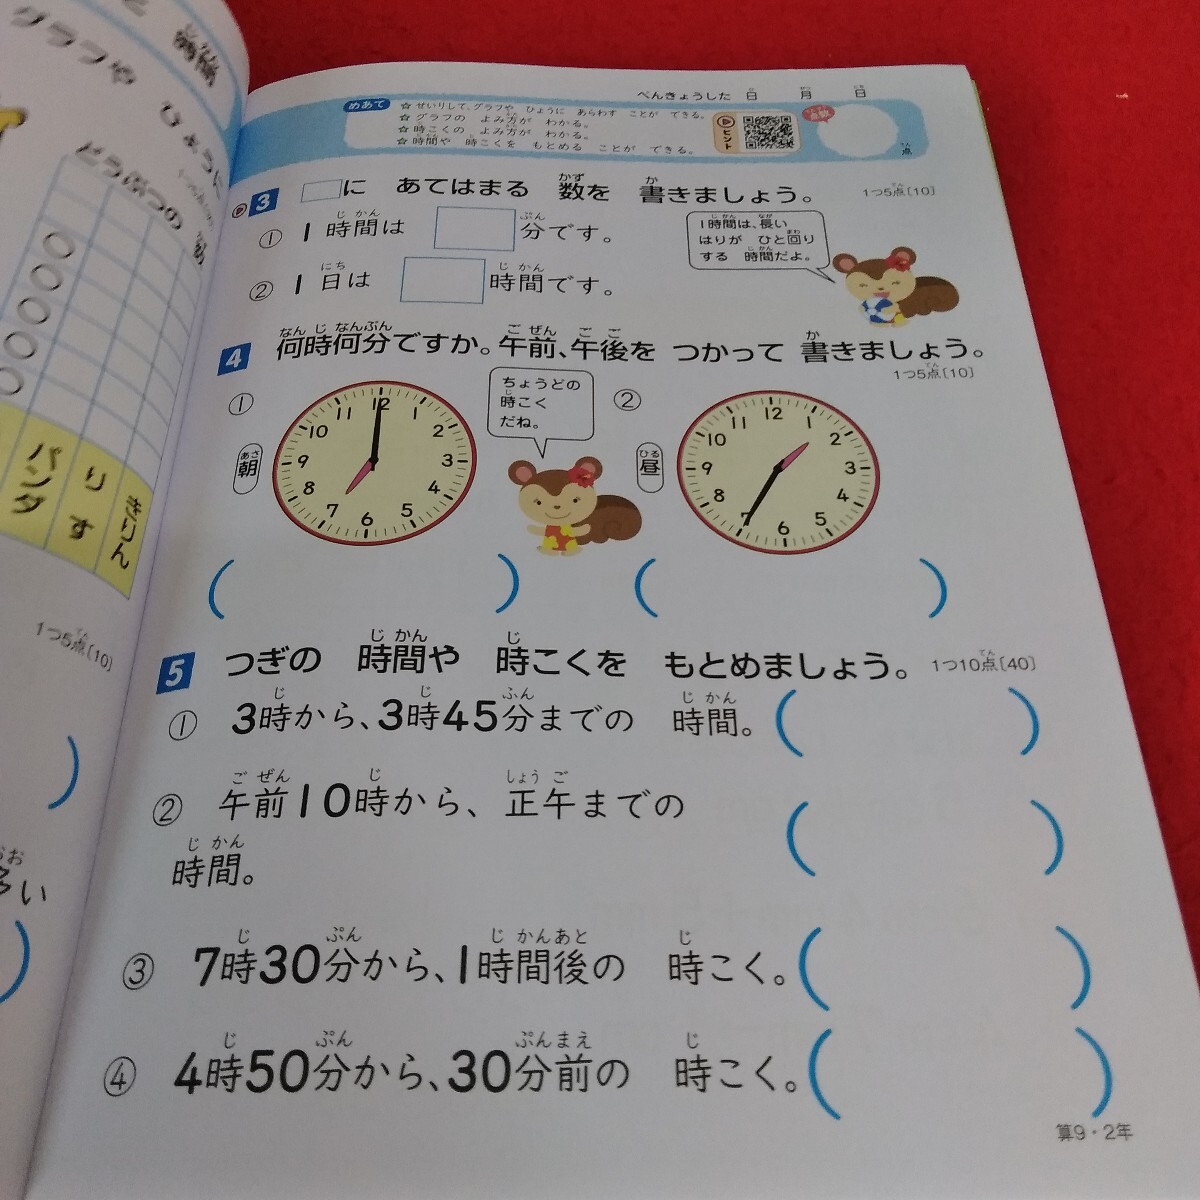 グラフや ひょうに
どうぶつの 数
きりん
りす
パンダ
1つ5点〔10〕
多い
べんきょうした 日 月 日
めあて
☆せいりして、グラフや ひょうに あらわす ことが できる。
☆グラフの よみ方が わかる。
☆時こくの よみ方が わかる。
☆時間や 時こくを もとめる ことが できる。
ヒント
点数
点
3 □に あてはまる 数を 書きましょう。
1つ5点〔10〕
① 1時間は □分です。
② 1日は □時間です。
1時間は、長い
はりが ひと回り
する 時間だよ。
4 何時何分ですか。午前、午後を つかって 書きましょう。
1つ5点〔10〕
①
朝
12 1 2 3 4 5 6 7 8 9 10 11
ちょうどの
時こく
だね。
②
昼
12 1 2 3 4 5 6 7 8 9 10 11
( )
( )
5 つぎの 時間や 時こくを もとめましょう。
1つ10点〔40〕
① 3時から、3時45分までの 時間。( )
② 午前10時から、正午までの
時間。 ( )
③ 7時30分から、1時間後の 時こく。( )
④ 4時50分から、30分前の 時こく。( )
算9・2年